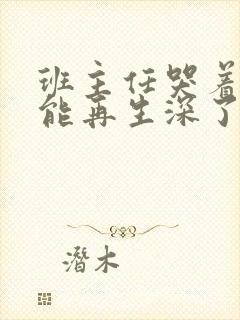 班主任哭着
能再生深了
潛木